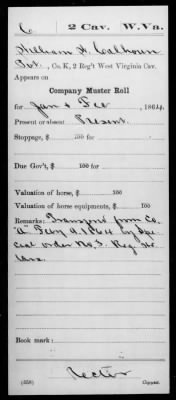 C 2 Cav. W.Va.
William H. Calhoun
Pvt., Co. K, 2 Reg't West Virginia Cav.
Appears on
Company Muster Roll
for Jan & Feb, 1864.
Present or absent Present
Stoppage, $ 100 for
Due Gov't, $ 100 for
Valuation of horse, $ 100
Valuation of horse equipments, $ 100
Remarks: Transferred from Co.
"A" Feby 9. 1864 by Spe
cial order No. 5. Reg. Hd
Qrs.
Book mark:
Rector
(358) Copyist.